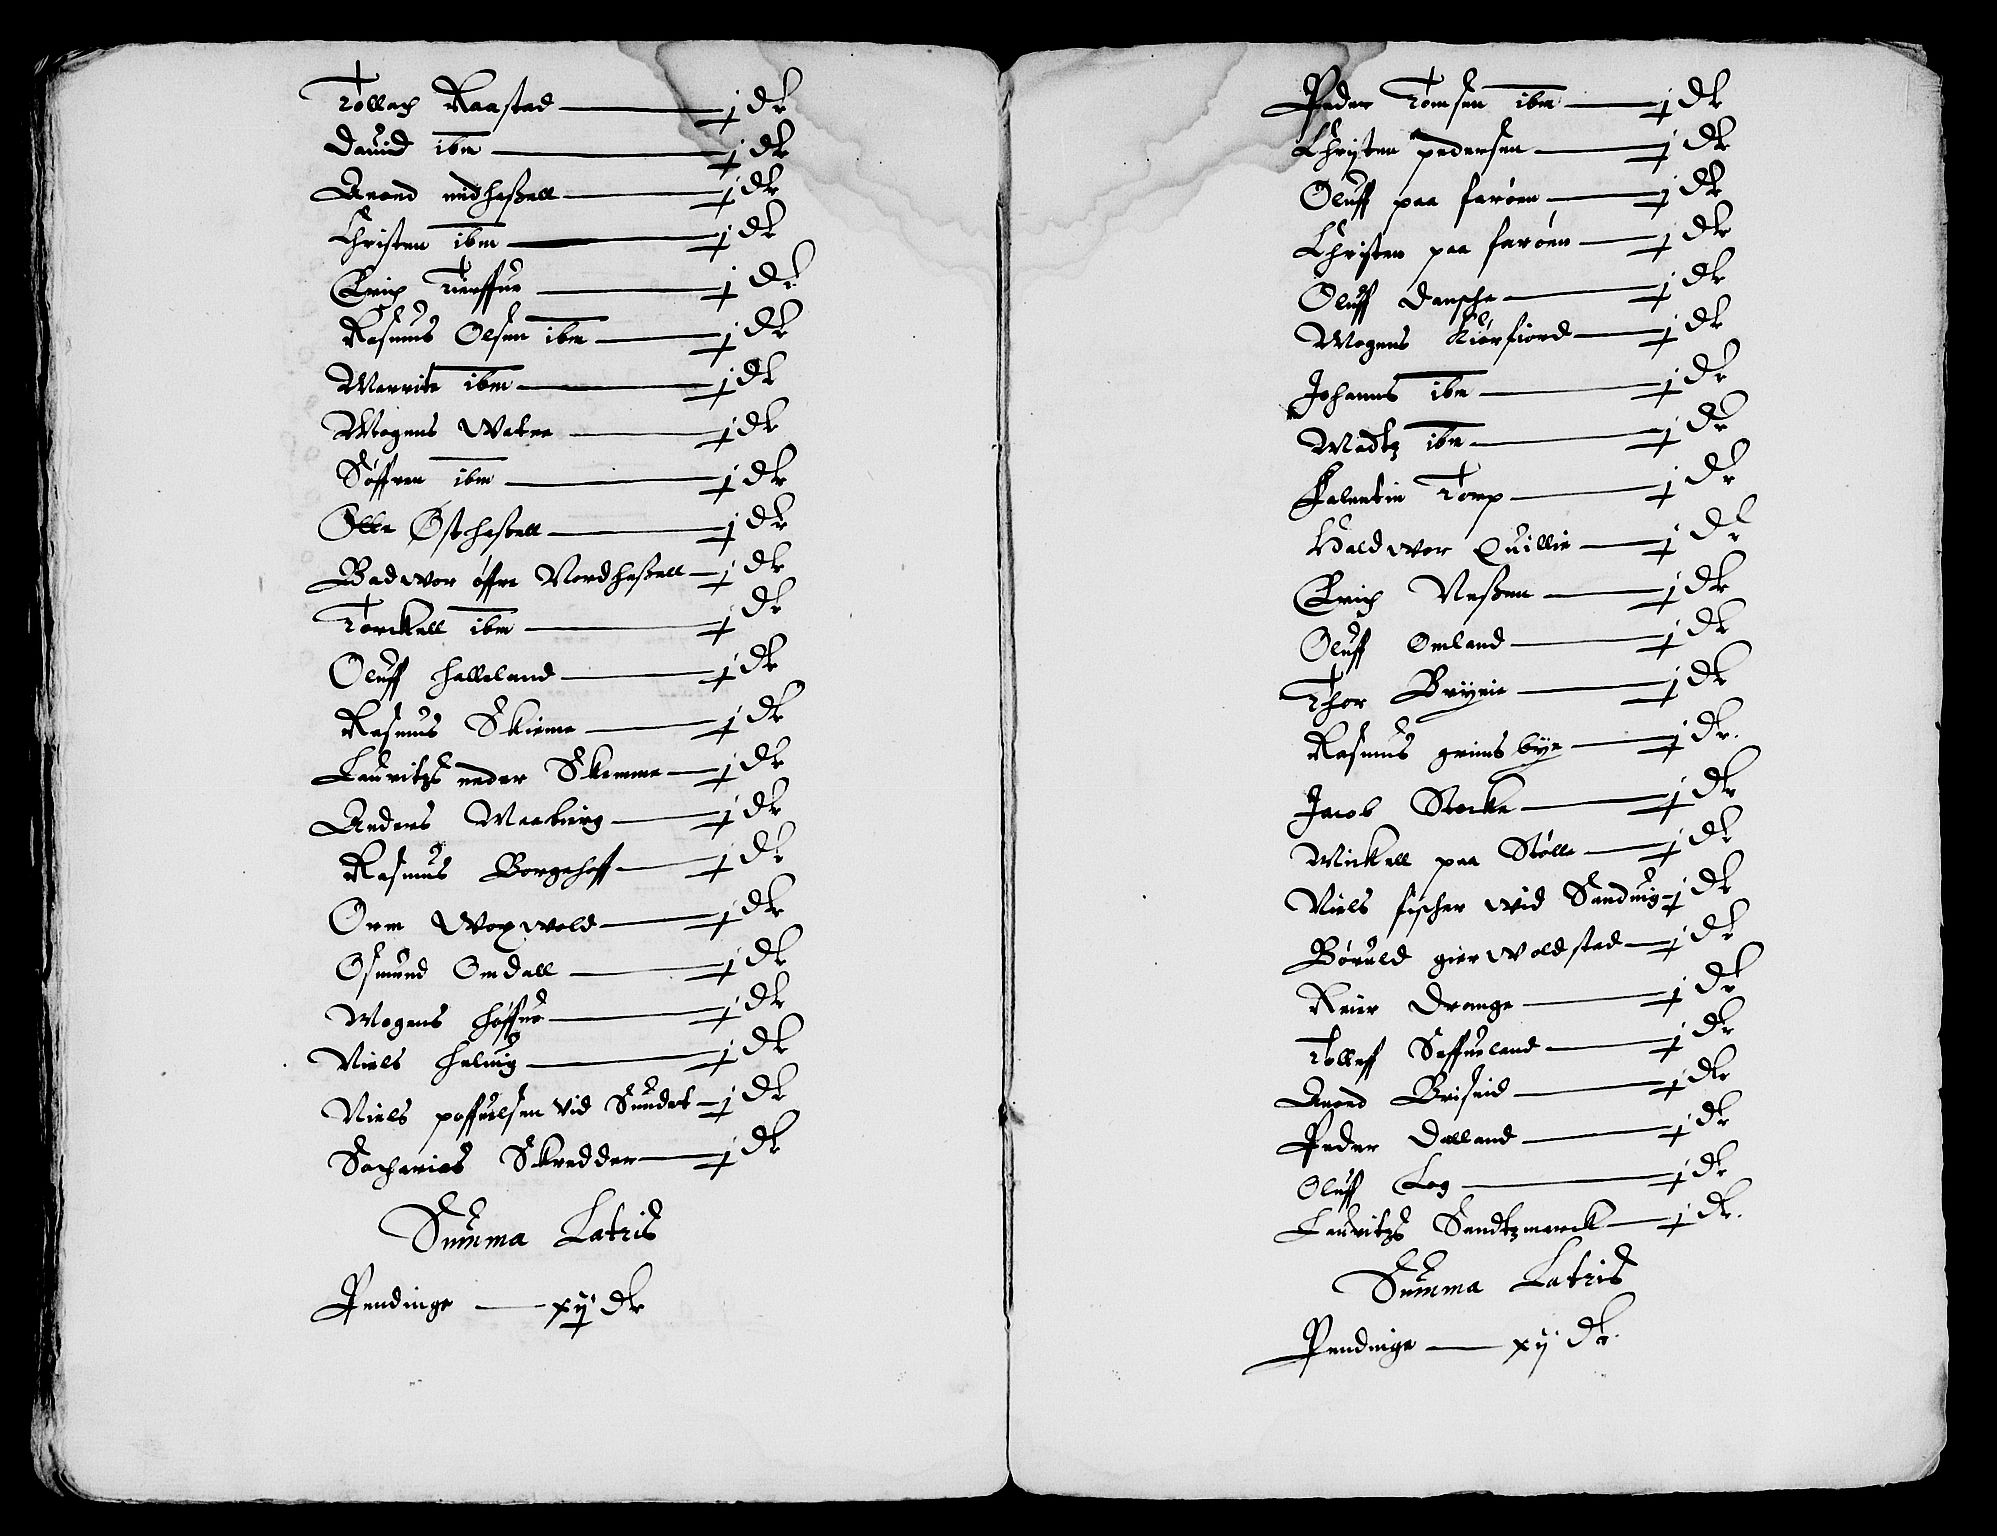 Tollach Raastad — j dr
Dauid ibm — j dr
Anond midhaßell — j dr
Christen ibm — j dr
Erich Tierffue — j dr
Rasmus Olsen ibm — j dr
Merrite ibm — j dr
Mogens Watne — j dr
Søffren ibm — j dr
Olle Østhaßell — j dr
Badwor øffre Nordhaßell — j dr
Torckell ibm — j dr
Oluff Halleland — j dr
Rasmus Skieme — j dr
Lauritzs neder Skemme — j dr
Anders Maaberg — j dr
Rasmus Borgehoff — j dr
Orm Woxwold — j dr
Osmund Omdall — j dr
Mogens Høffue — j dr
Niels Heluig — j dr
Niels poffuelsen vid Sundet — j dr
Sacharias Skredder — j dr
Summa Latris
Pendinge — xij dr
Peder Tomsen ibm — j dr
Christen pedersen — j dr
Oluff paa farøen — j dr
Christen paa farøen — j dr
Oluff Dansche — j dr
Mogens Kiørfiord — j dr
Johanns ibm — j dr
Madtz ibm — j dr
Falentin Torp — j dr
Haldwor Quillie — j dr
Erich Neßen — j dr
Oluff Omland — j dr
Thor Brynie — j dr
Rasmus grimsbye — j dr.
Jacob Stocke — j dr
Mickell paa Stølle — j dr
Niels fischer wid Sanduig — j dr
Børuld gierwoldstad — j dr
Reier Drange — j dr
Tolleff Seffueland — j dr
Anond Briseid — j dr
Peder Dalland — j dr
Oluff Log — j dr
Lauritzs Sandtzmarck — j dr.
Summa Latris
Pendinge — xij dr.